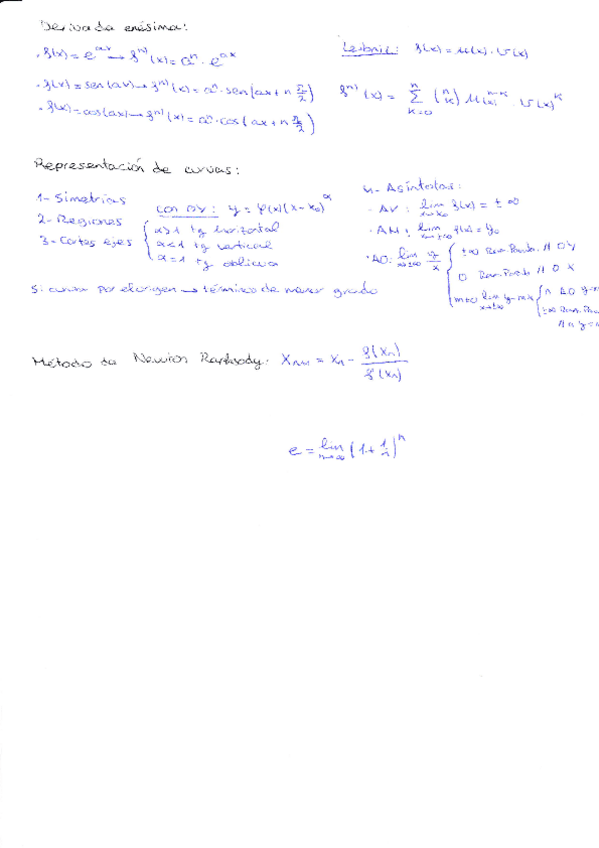 Derivada enésima:
· f(x) = e^{ax} → f^{n)}(x) = a^n · e^{ax}
· f(x) = sen(ax) → f^{n)}(x) = a^n · sen(ax + n π/2)
· f(x) = cos(ax) → f^{n)}(x) = a^n · cos(ax + n π/2)
Leibniz: f(x) = u(x) · v(x)
f^{n)}(x) = Σ_{k=0}^{n} (n k) u(x)^{n-k} · v(x)^{k}
Representación de curvas:
1- Simetrías
2- Regiones
3- Cortes ejes
con OX: y = φ(x)(x - x₀)^α
α>1 tg horizontal
α<1 tg vertical
α=1 tg oblicua
Si curva por el origen → término de menor grado
4- Asíntotas:
· AV: lim f(x) = ± ∞
· AH: lim_{x→±∞} f(x) = y₀
· AO: lim_{x→±∞} y/x
±∞ Ram. Parab. // OY
0 Ram. Parab // OX
m≠0 lim_{x→±∞} y-mx
n AO y=
±∞ Ram. Parab.
// a y=
Método de Newton Raphsody: X_{n+1} = X_n - f(X_n) / f(X_n)
e = lim_{n→∞} (1 + 1/n)^n